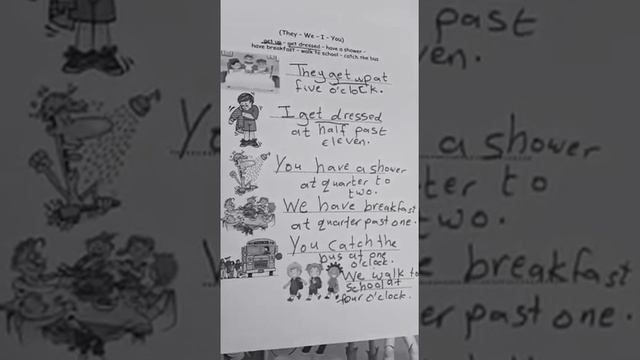 (They - We - I - You)
get up - get dressed - have a shower -
have breakfast - walk to school - catch the bus
They get up at
five o'clock.
I get dressed
at half past
eleven.
You have a shower
at quarter to
two.
We have breakfast
at quarter past one.
You catch the
bus at one
o'clock.
We walk to
school at
four o'clock.